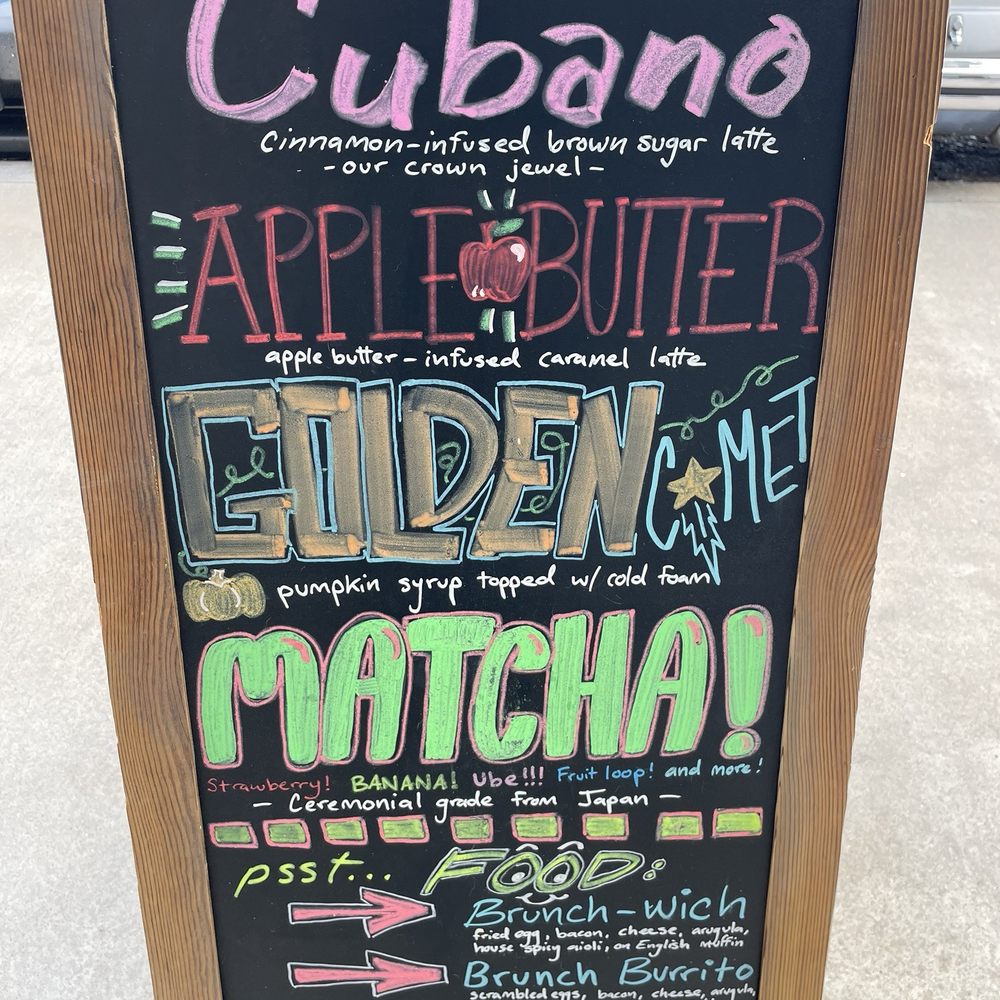 Cubano
Cinnamon-infused brown sugar latte
- our crown jewel -
APPLE BUTTER
apple butter - infused caramel latte
GOLDEN COMET
pumpkin syrup topped w/ cold foam
MATCHA!
Strawberry! BANANA! Ube!!! Fruit loop! and more!
- Ceremonial grade from Japan -
psst... FOOD:
Brunch-wich
fried egg, bacon, cheese, arugula,
house spicy aioli, on English Muffin
Brunch Burrito
scrambled eggs, bacon, cheese, arugula,